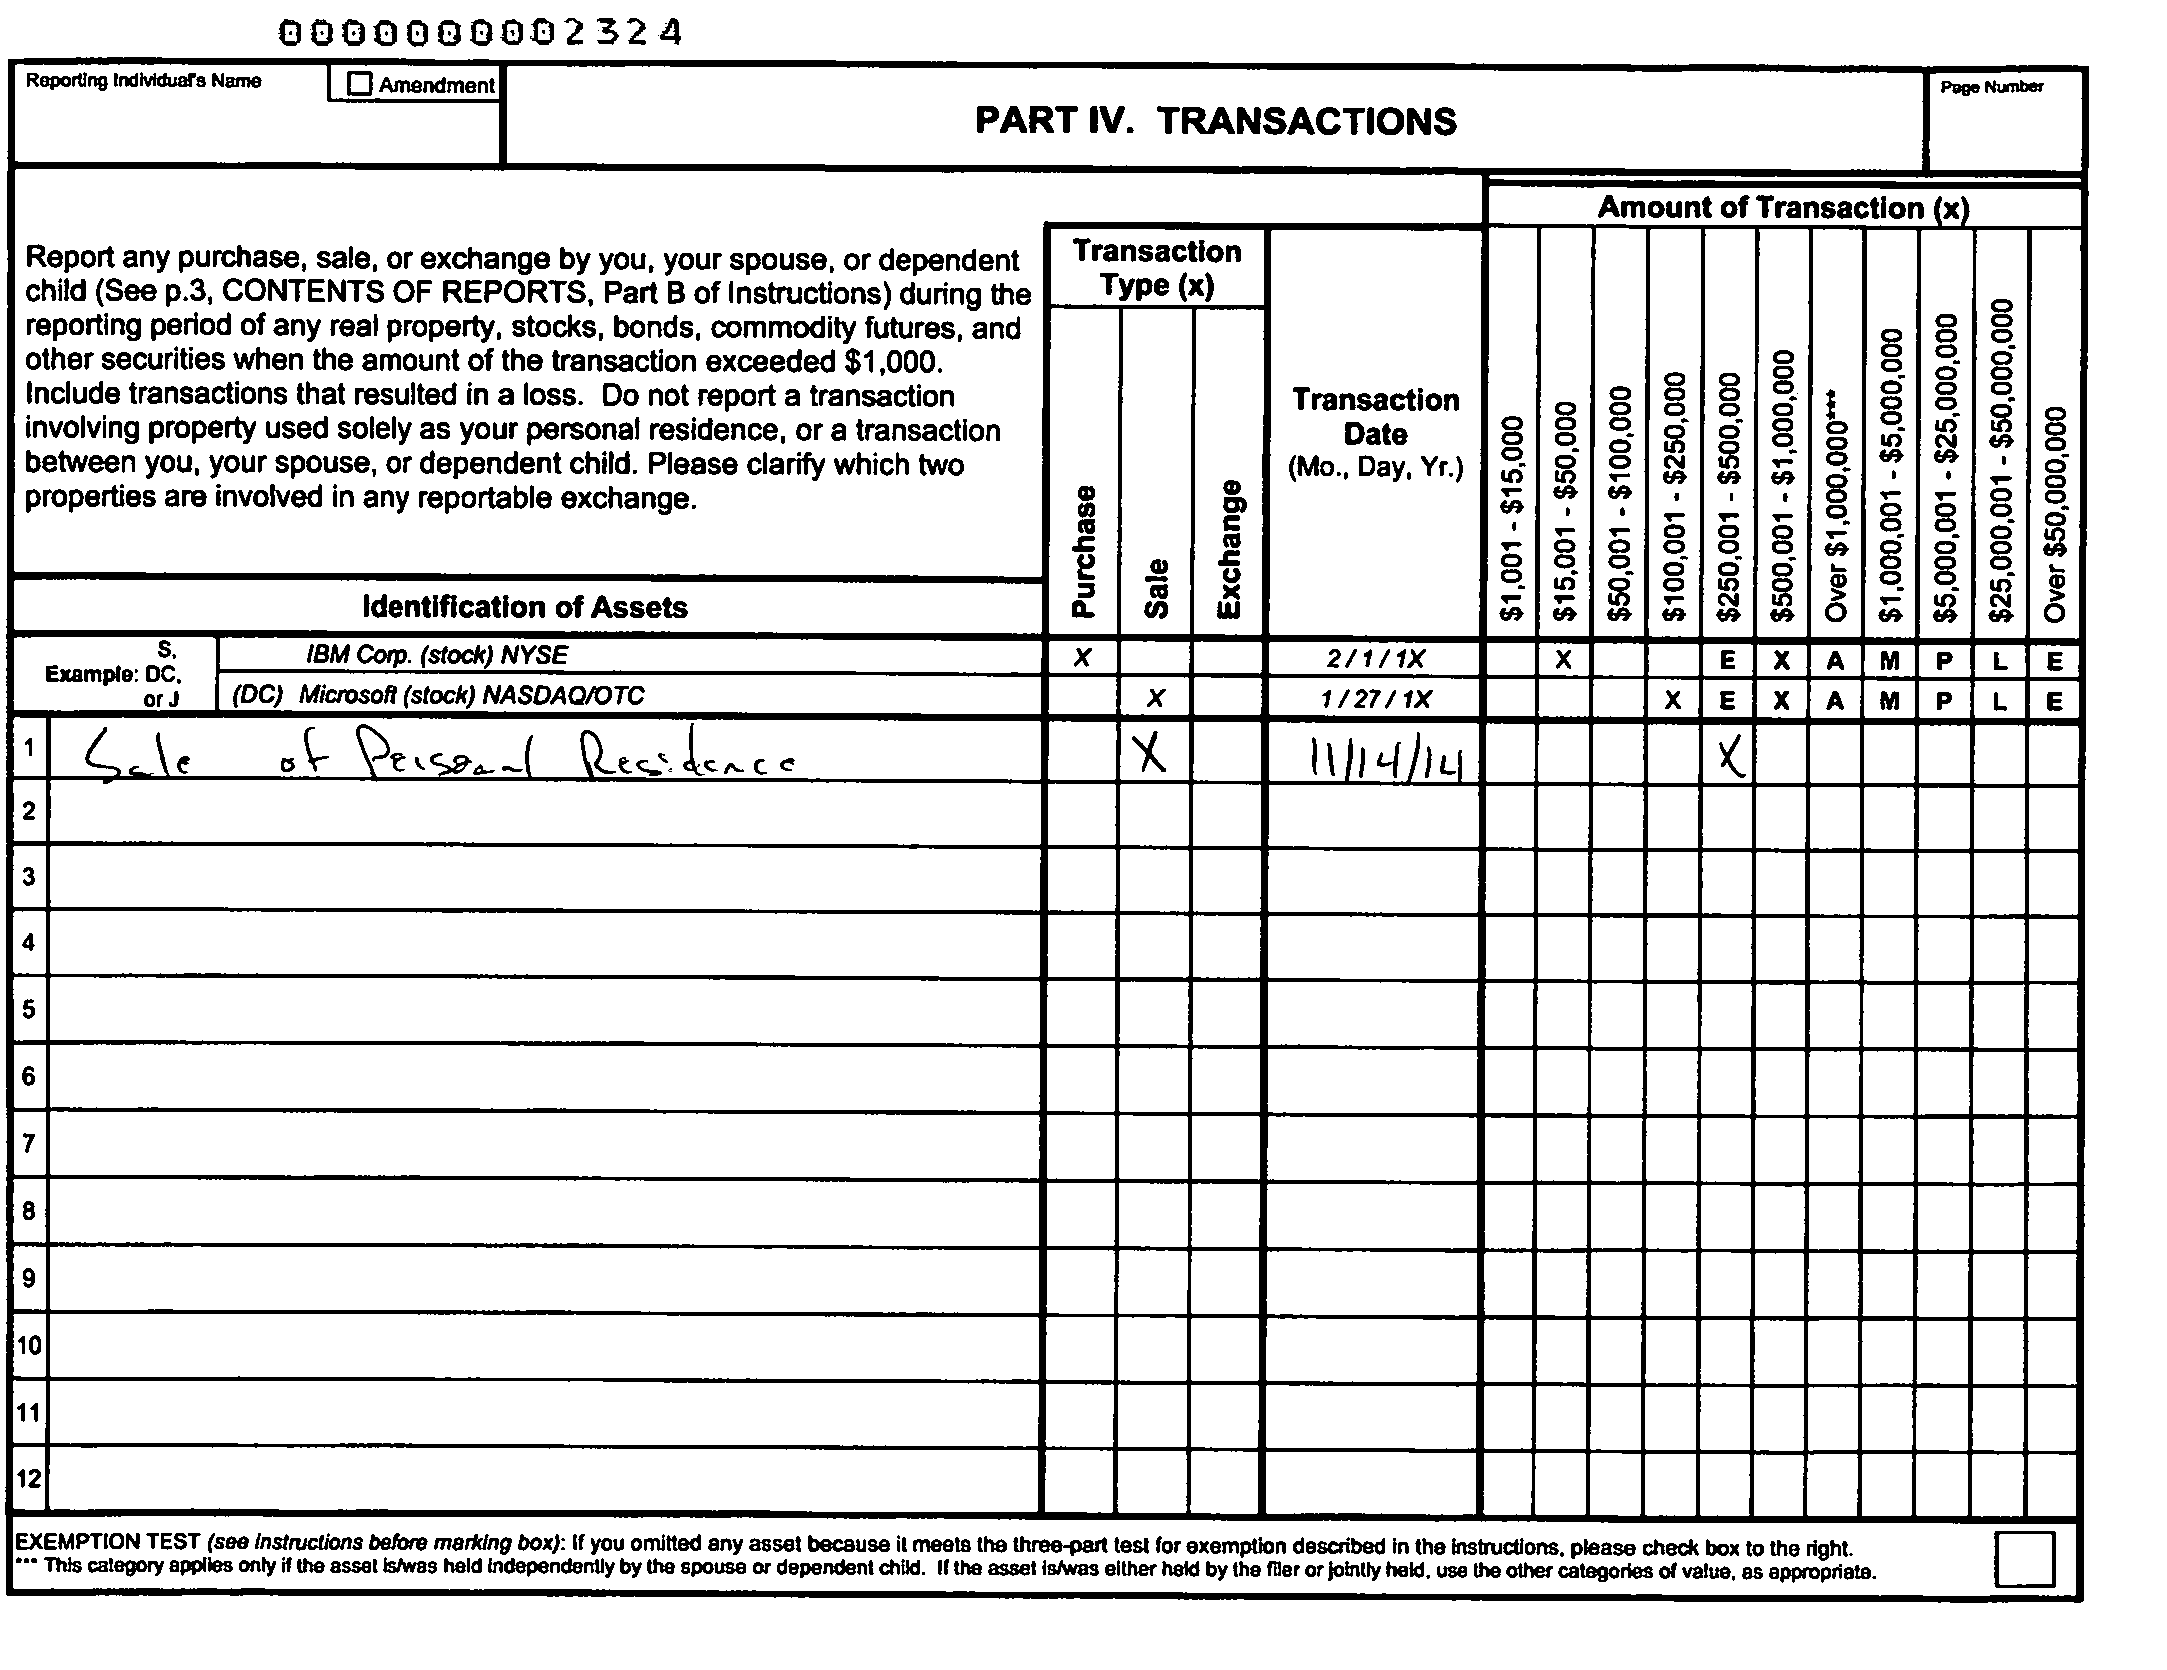 0000000002324
Reporting Individual's Name
☐ Amendment
PART IV. TRANSACTIONS
Page Number
Report any purchase, sale, or exchange by you, your spouse, or dependent
child (See p.3, CONTENTS OF REPORTS, Part B of Instructions) during the
reporting period of any real property, stocks, bonds, commodity futures, and
other securities when the amount of the transaction exceeded $1,000.
Include transactions that resulted in a loss. Do not report a transaction
involving property used solely as your personal residence, or a transaction
between you, your spouse, or dependent child. Please clarify which two
properties are involved in any reportable exchange.
Identification of Assets
Transaction
Type (x)
Purchase
Sale
Exchange
Transaction
Date
(Mo., Day, Yr.)
Amount of Transaction (x)
$1,001 - $15,000
$15,001 - $50,000
$50,001 - $100,000
$100,001 - $250,000
$250,001 - $500,000
$500,001 - $1,000,000
Over $1,000,000***
$1,000,001 - $5,000,000
$5,000,001 - $25,000,000
$25,000,001 - $50,000,000
Over $50,000,000
S,
Example: DC,
or J
IBM Corp. (stock) NYSE X 2/1/1X X E X A M P L E
(DC) Microsoft (stock) NASDAQ/OTC X 1/27/1X X E X A M P L E
1 Sale of Personal Residence X 11/14/14 X
2
3
4
5
6
7
8
9
10
11
12
EXEMPTION TEST (see instructions before marking box): If you omitted any asset because it meets the three-part test for exemption described in the instructions, please check box to the right.
*** This category applies only if the asset is/was held independently by the spouse or dependent child. If the asset is/was either held by the filer or jointly held, use the other categories of value, as appropriate.